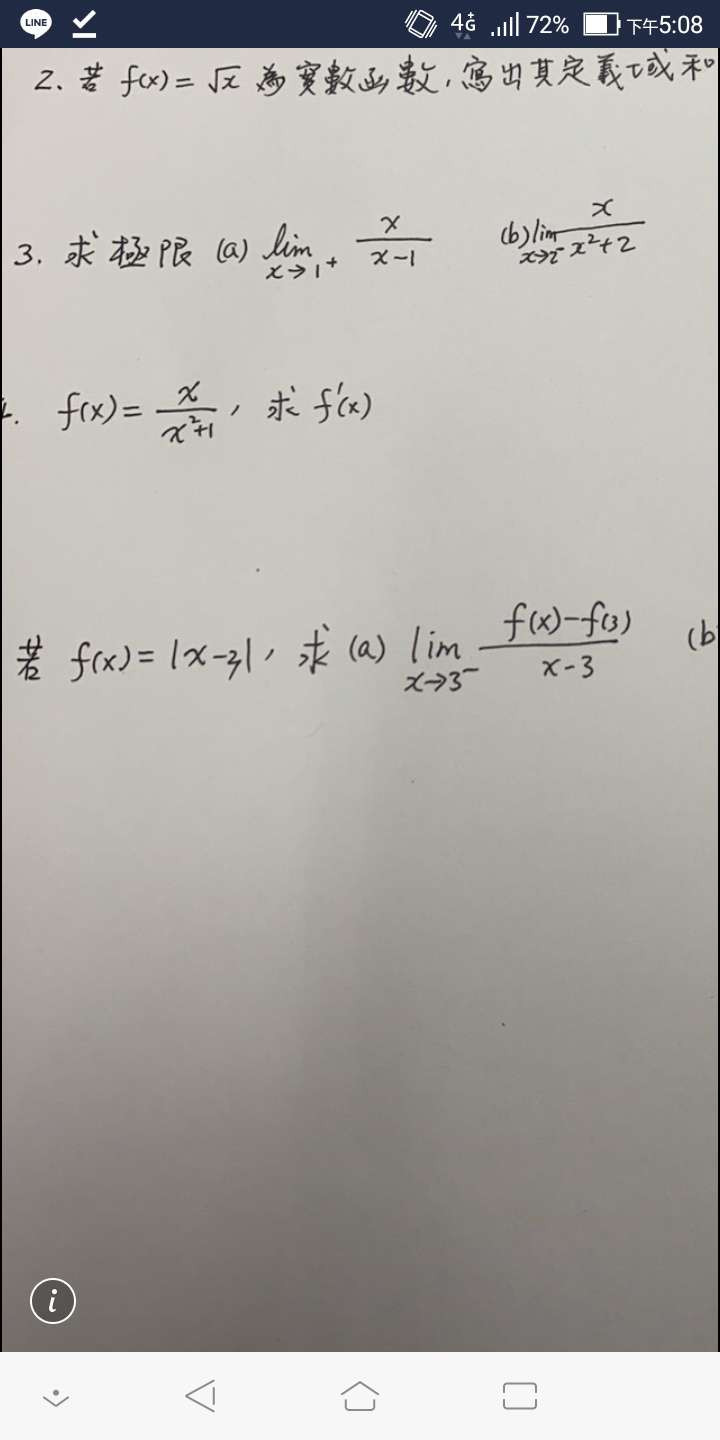 LINE 4G 72% 下午5:08
2. 若 f(x) = √x 為實數函數, 寫出其定義域和
3. 求極限 (a) lim x→1+ x/(x-1) (b) lim x→2- x/(x²+2)
f(x) = x/(x²+1), 求 f'(x)
若 f(x) = |x-3|, 求 (a) lim x→3- (f(x)-f(3))/(x-3) (b
i